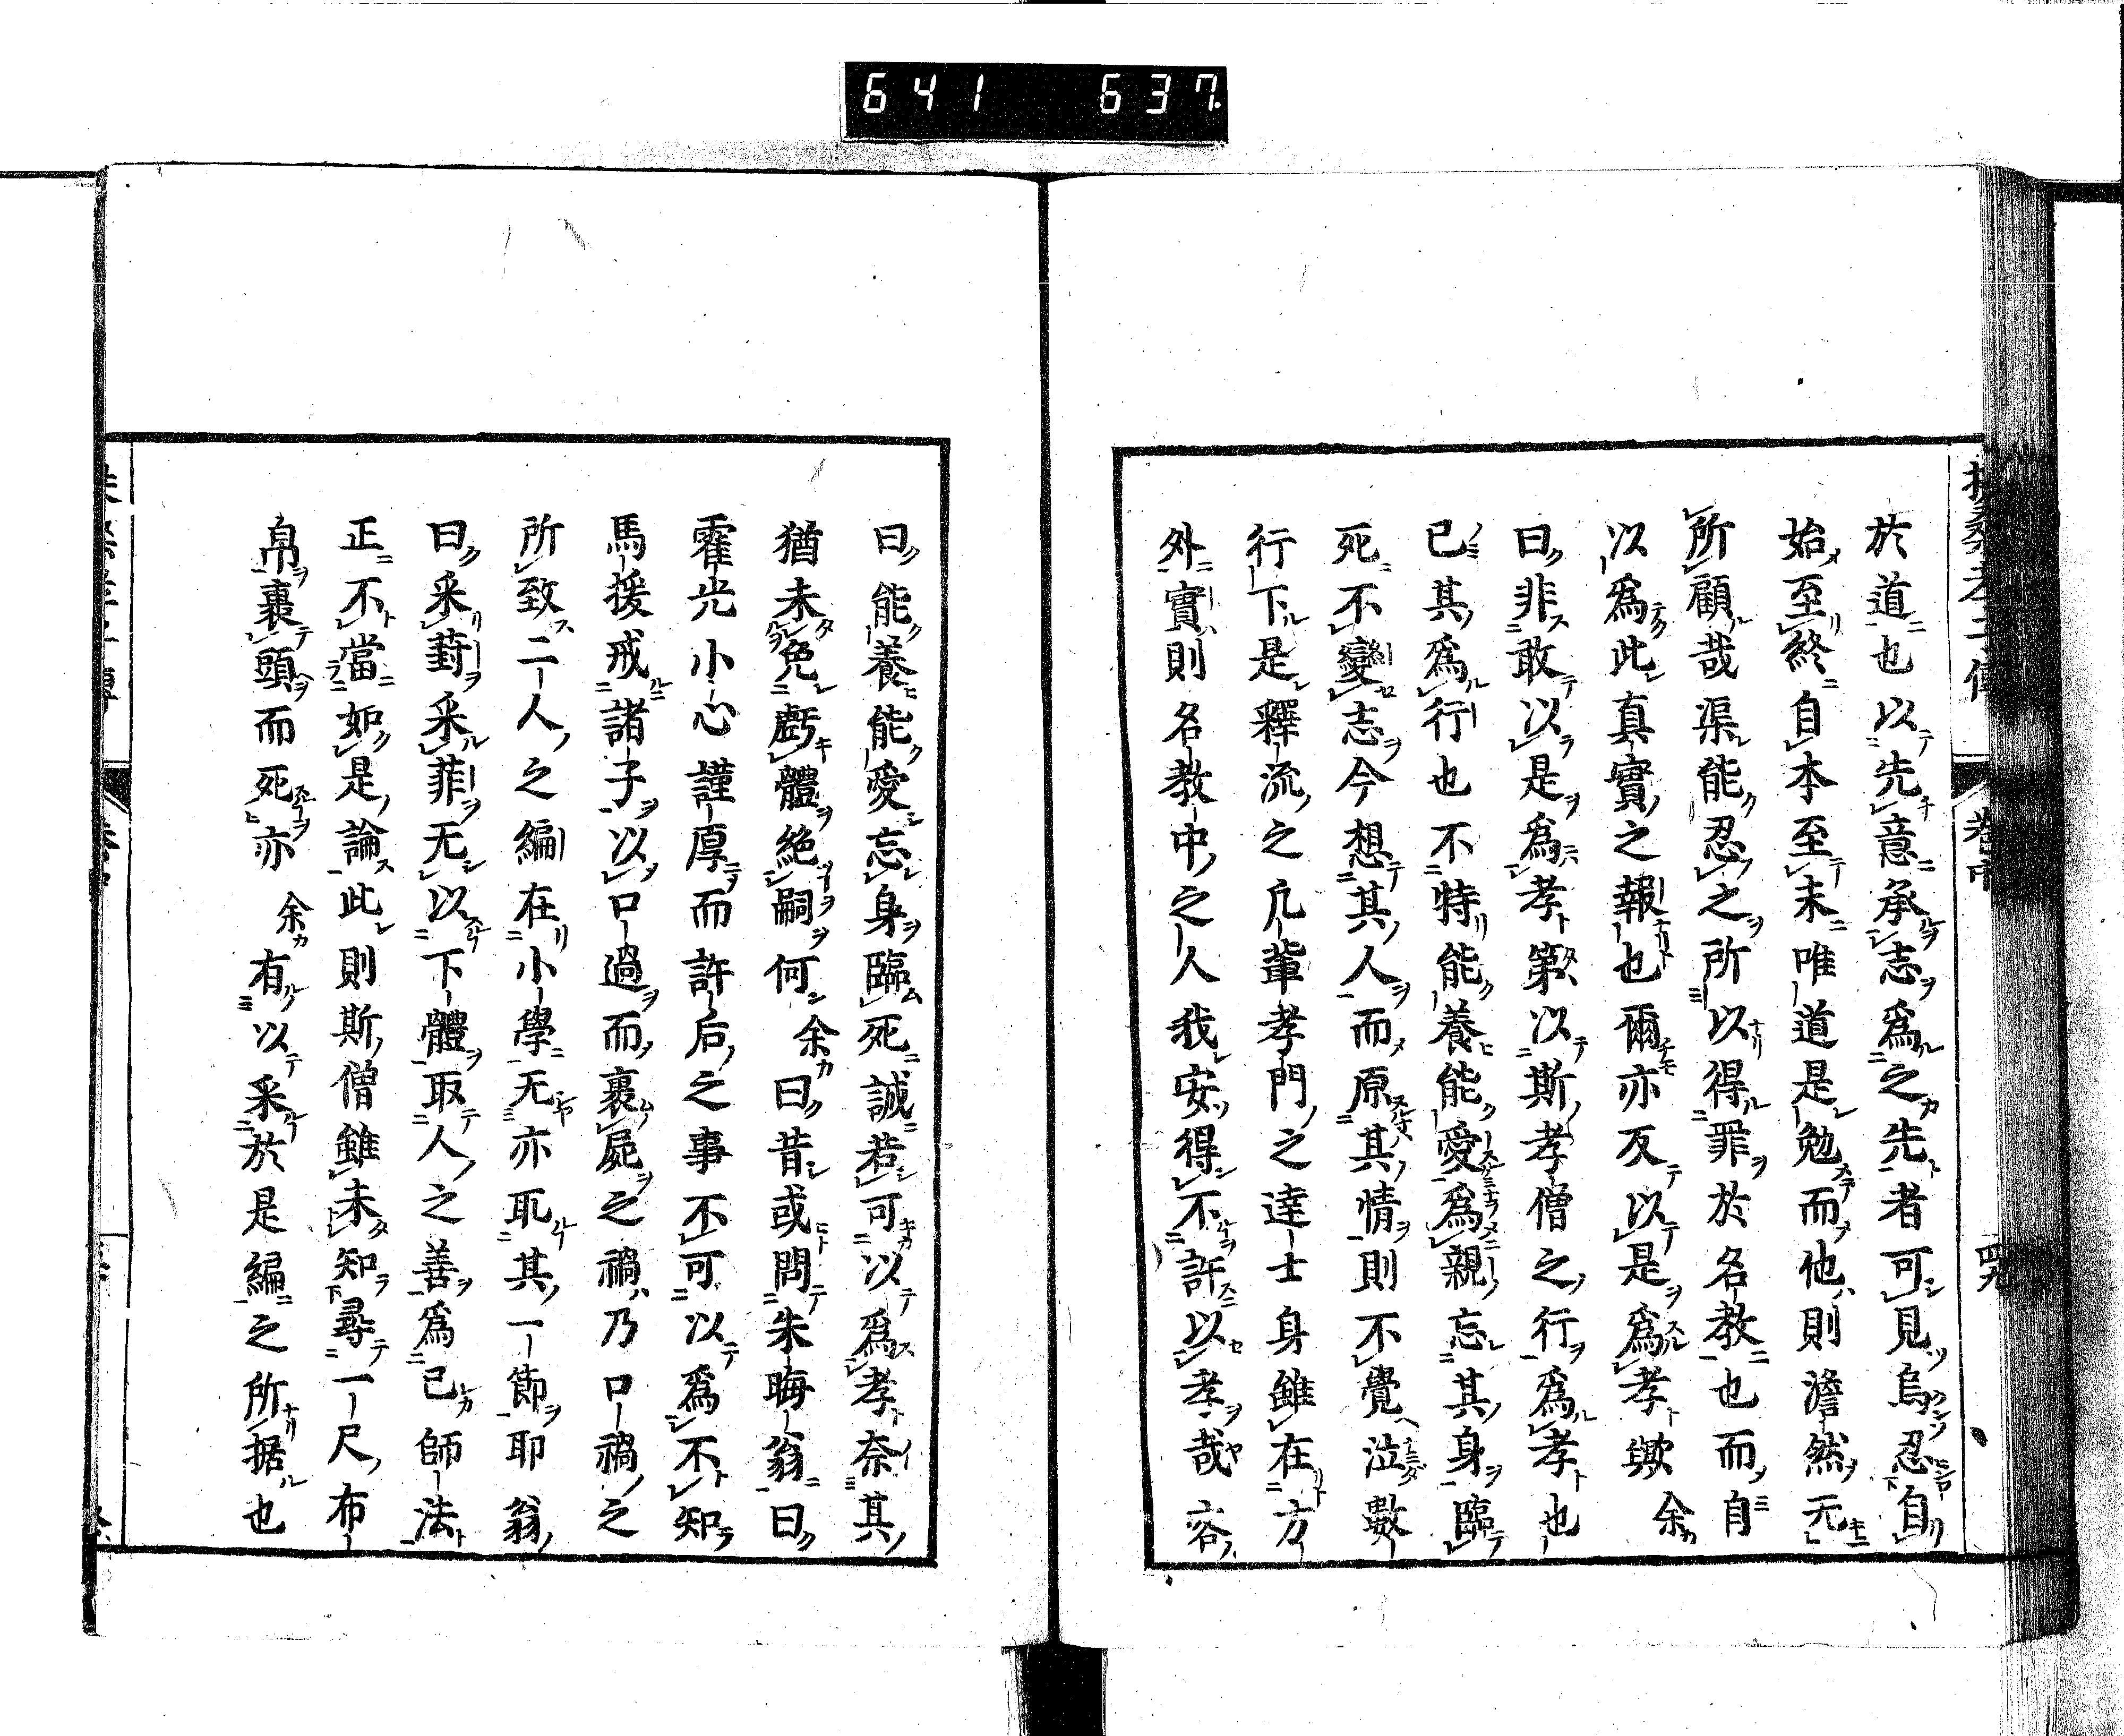 641 637.
扶桑孝子傳 卷中 四九
於道也以先意承志爲之先者可見烏忍自
始至終自本至末唯道是勉而他則澹然无
所顧哉渠能忍之所以得罪於名教也而自
以爲此真實之報也爾亦反以是爲孝與 余
曰非敢以是爲孝第以斯孝僧之行爲孝也
已其爲行也不特能養能愛爲親忘其身臨
死不變志今想其人而原其情則不覺泣數
行下是釋流之凢輩孝門之達士身雖在方
外實則名教中之人我安得不許以孝哉 容
曰能養能愛忘身臨死誠若可以爲孝奈其
猶未免虧體絶嗣何 余曰昔或問朱晦翁曰
霍光小心謹厚而許后之事不可以爲不知
馬援戒諸子以口過而裹屍之禍乃口禍之
所致二人之編在小學无亦耴其一節耶翁
曰采葑采菲无以下體取人之善爲己師法
正不當如是論此則斯僧雖未知尋一尺布
帛裹頭而死亦 余有以采於是編之所据也